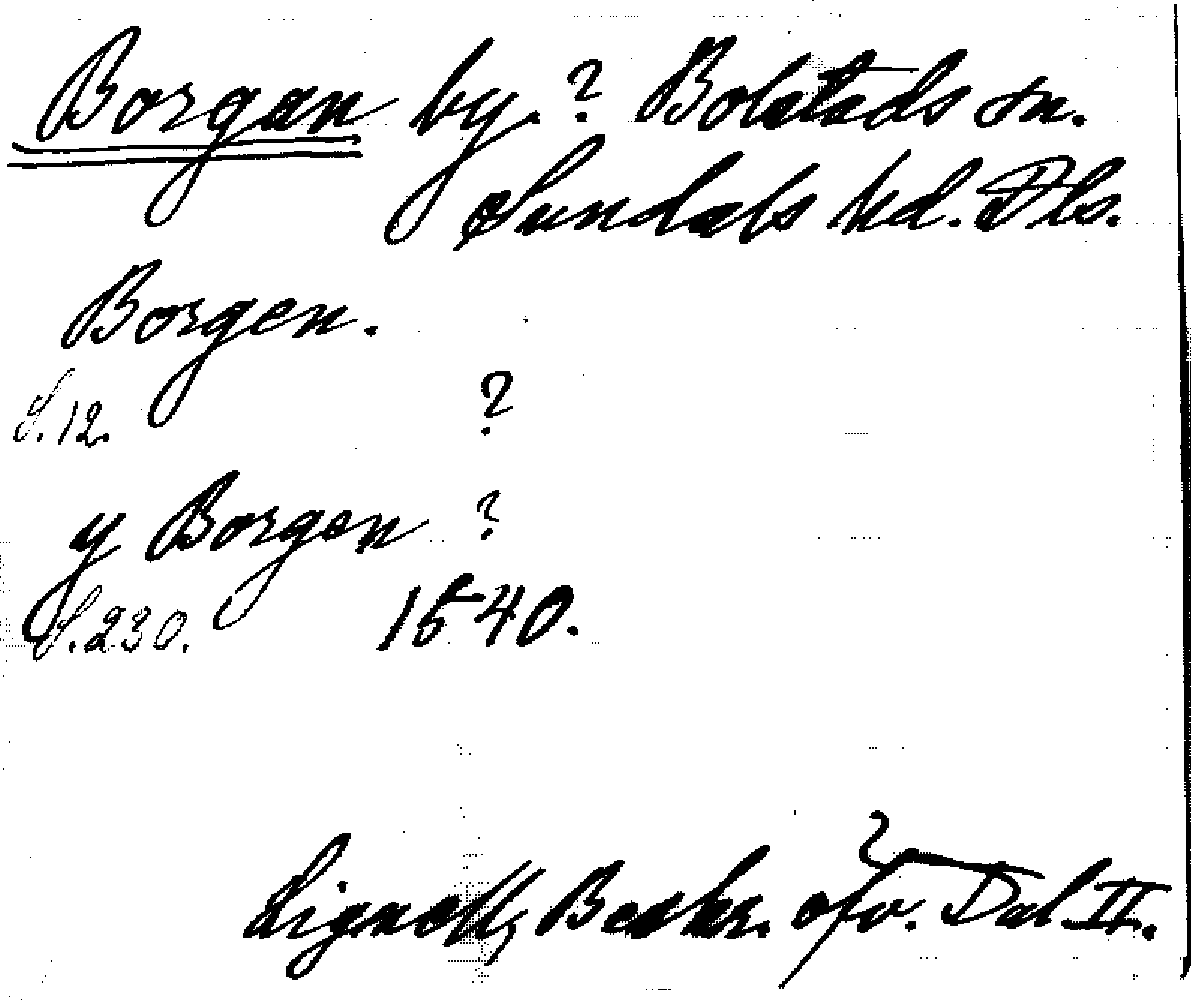 Borgan by. ? Bolstads sn.
Sundals hd. Dls.
Borgen.
S. 12. ?
y Borgen ?
S. 230. 1540.
Lignell, Beskr. öfv. Dal II.